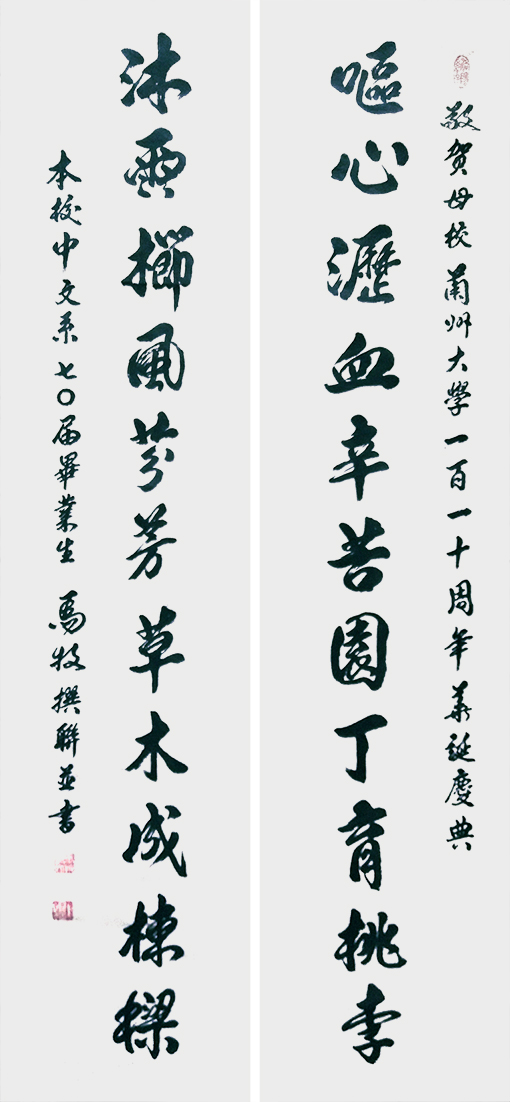 敬賀母校蘭州大學一百一十周年華誕慶典
嘔心瀝血辛苦園丁育桃李
沐雨櫛風芬芳草木成棟樑
本校中文系七〇届畢業生 馬牧撰聯並書